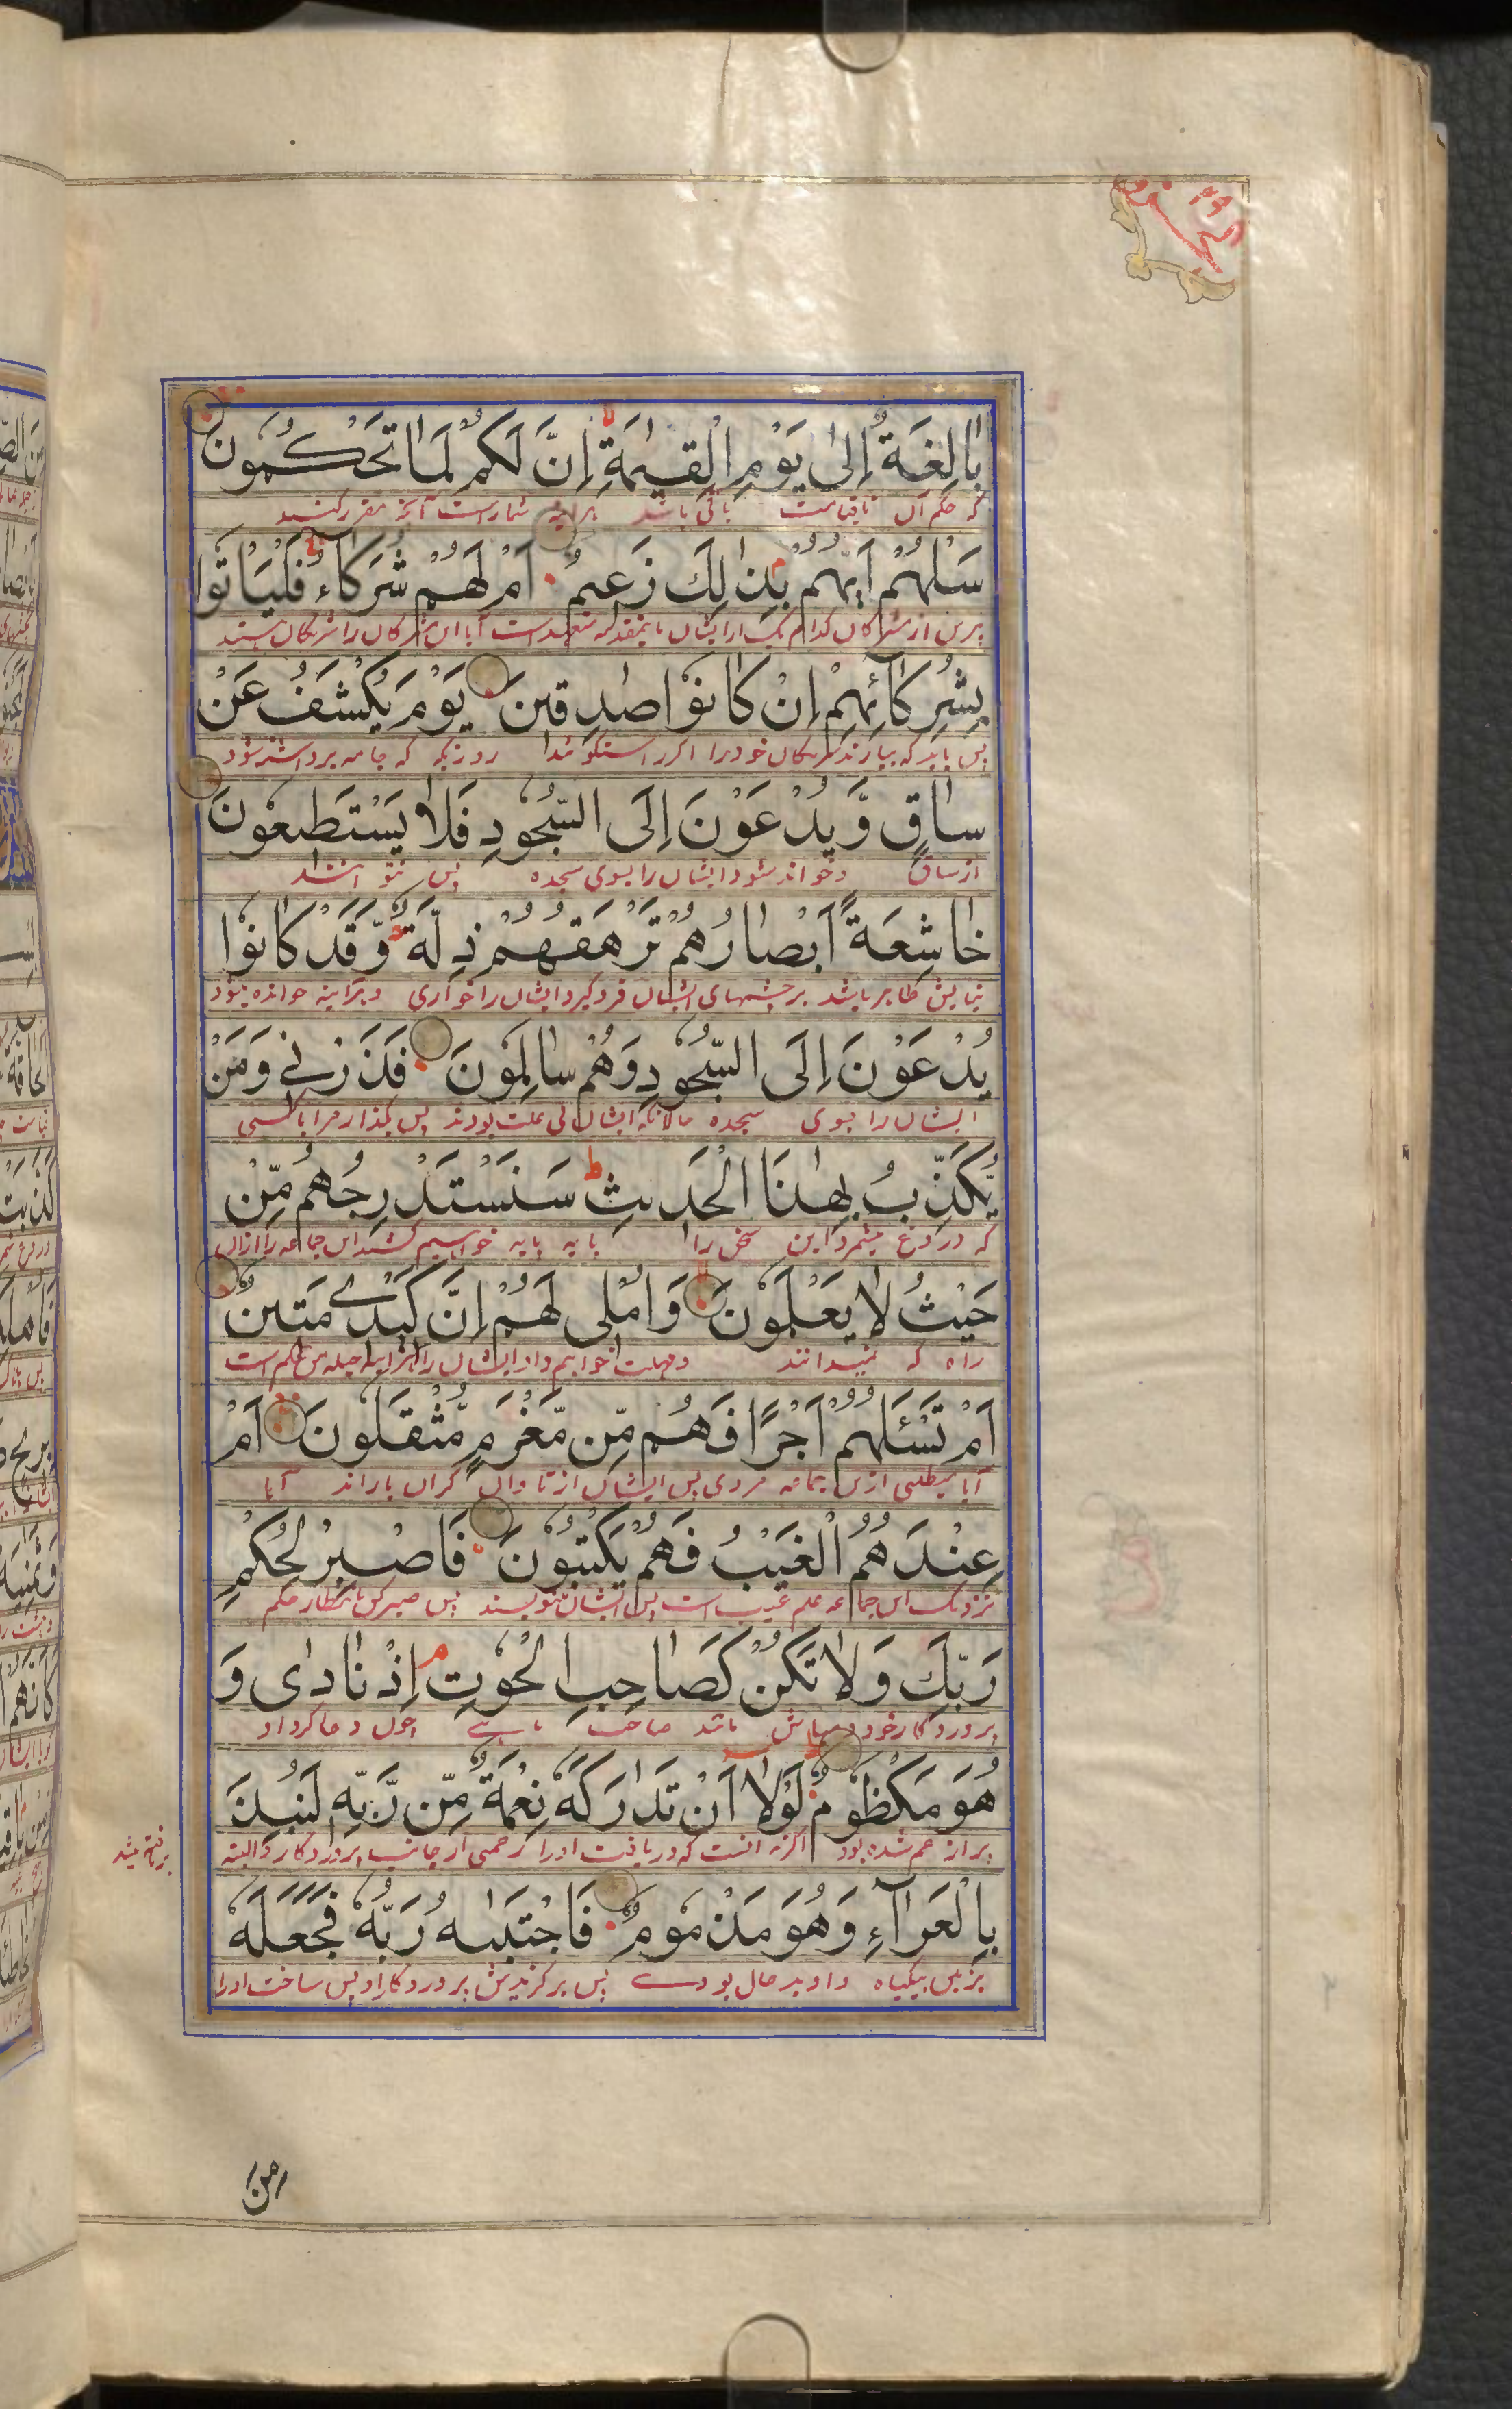 الجزو ۲۹
بٰالِغَةٌ اِلىٰ يَوْمِ الْقِيٰمَةِ اِنَّ لَكُمْ لَمٰا تَحْكُمُونَ
که حکم آن تا قیامت باقی باشد هرآینه شماراست آنچه مقرر کنید
سَلْهُمْ اَيُّهُمْ بِذٰلِكَ زَعيمٌ اَمْ لَهُمْ شُرَكٰاءُ فَلْيَأْتُوا
بپرس از مشرکان کدام یک از ایشان باینمقدمه متعهد است آیا این مشرکان را شریکان هستند
بِشُرَكٰآئِهِمْ اِنْ كٰانُوْا صٰدِقينَ يَوْمَ يُكْشَفُ عَنْ
پس باید که بیارند شریکان خود را اگر راستگو هستند روزیکه که جامه برداشته شود
سٰاقٍ وَّ يُدْعَوْنَ اِلَى السُّجُوْدِ فَلٰا يَسْتَطيعُوْنَ
از ساق و خوانده شود ایشان را بسوی سجده پس نتوانند
خٰاشِعَةً اَبْصٰارُهُمْ تَرْهَقُهُمْ ذِلَّةٌ وَّقَدْ كٰانُوْا
نیایش ظاهر باشد بر چشمهای ایشان فروگیرد ایشان را خواری و هرآینه خوانده میشود
يُدْعَوْنَ اِلَى السُّجُوْدِ وَهُمْ سٰالِمُوْنَ فَذَرْنِي وَمَنْ
ایشان را بسوی سجده حالانکه ایشان بی علت بودند پس بگذار مرا با کسی
يُّكَذِّبُ بِهٰذَا الْحَديثِ سَنَسْتَدْرِجُهُمْ مِّنْ
که دروغ میشمرد این سخن را پایه پایه خواهیم کشید این جماعه را ازان
حَيْثُ لٰا يَعْلَمُوْنَ وَاُمْلي لَهُمْ اِنَّ كَيْدي مَتينٌ
راه که نمیدانند و مهلت خواهیم داد ایشان را هرآینه حیله من محکم است
اَمْ تَسْئَلُهُمْ اَجْرًا فَهُمْ مِّنْ مَّغْرَمٍ مُّثْقَلُونَ اَمْ
آیا میطلبی ازین جماعه مزدی پس ایشان از تاوان گران باراند آیا
عِنْدَهُمُ الْغَيْبُ فَهُمْ يَكْتُبُوْنَ فَاصْبِرْ لِحُكْمِ
نزدیک این جماعه علم غیب است پس ایشان مینویسند پس صبر کن بانتظار حکم
رَبِّكَ وَلٰا تَكُنْ كَصٰاحِبِ الْحُوْتِ اِذْ نٰادٰى وَ
پروردگار خود و مباش مانند صاحب ماهی چون دعا کرد او
هُوَ مَكْظُوْمٌ لَوْلٰا اَنْ تَدٰارَكَهٗ نِعْمَةٌ مِّنْ رَّبِّهٖ لَنُبِذَ
پر از غم شده بود اگر نه آنست که دریافت او را رحمتی از جانب پروردگار او البته
بر تافته میشد
بِالْعَرٰآءِ وَهُوَ مَذْمُومٌ فَاجْتَبٰىهُ رَبُّهٗ فَجَعَلَهٗ
بزمین بیگیاه و او بد حال بودے پس برگزیدش پروردگار او پس ساخت او را
من